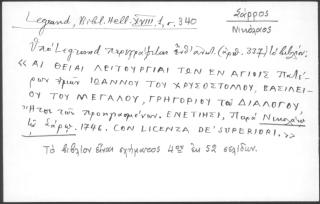 Legrand, Bibl. Hell. XVIII, 1, σ. 340
Σάρρος
Νικόλαος
Ὑπὸ Legrand περιγράφεται ἐνθ' ἀνωτ. (ἀριθ. 337) τὸ βιβλίον:
«ΑΙ ΘΕΙΑΙ ΛΕΙΤΟΥΡΓΙΑΙ ΤΩΝ ΕΝ ΑΓΙΟΙΣ Πατέ-
ρων ἡμῶν ΙΩΑΝΝΟΥ ΤΟΥ ΧΡΥΣΟΣΤΟΜΟΥ, ΒΑΣΙΛΕΙ-
ΟΥ ΤΟΥ ΜΕΓΑΛΟΥ, ΓΡΗΓΟΡΙΟΥ τοῦ ΔΙΑΛΟΓΟΥ,
Ἤτοι τῶν προηγιασμένων. ΕΝΕΤΙΗΣΙ, Παρὰ Νικολάῳ
τῷ Σάρῳ. 1746. CON LICENZA DE' SUPERIORI.»
Τὸ βιβλίον εἶναι σχήματος 4ου ἐκ 52 σελίδων.